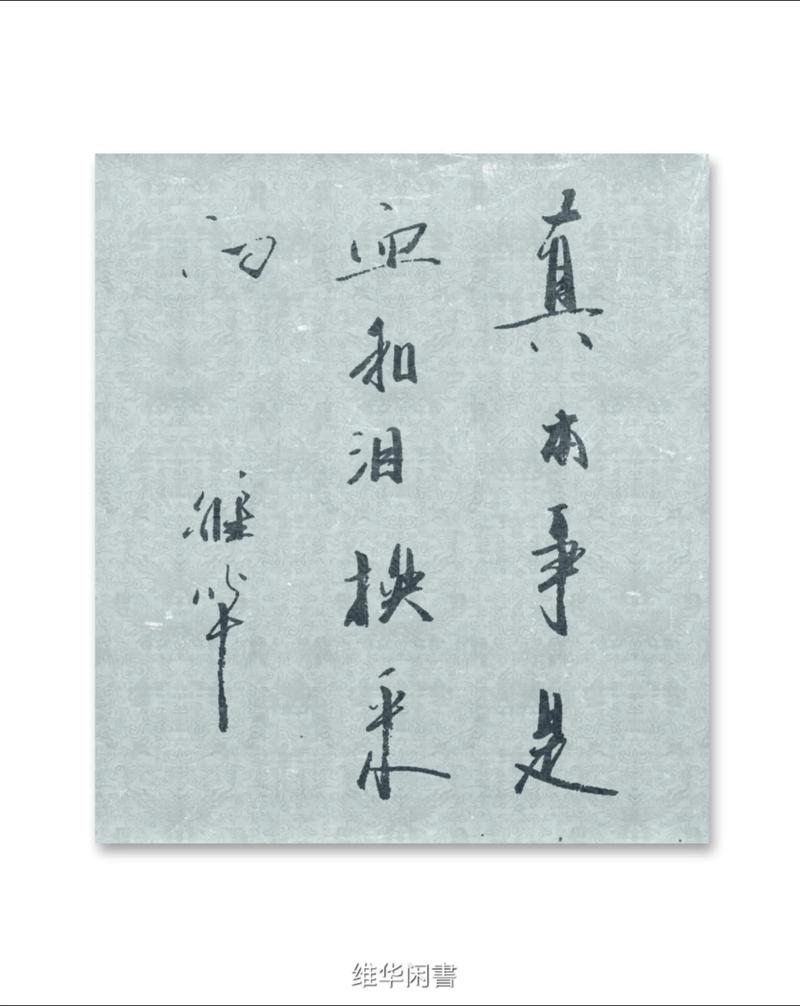 真本事是
血和泪换来
的
维华
维华闲書